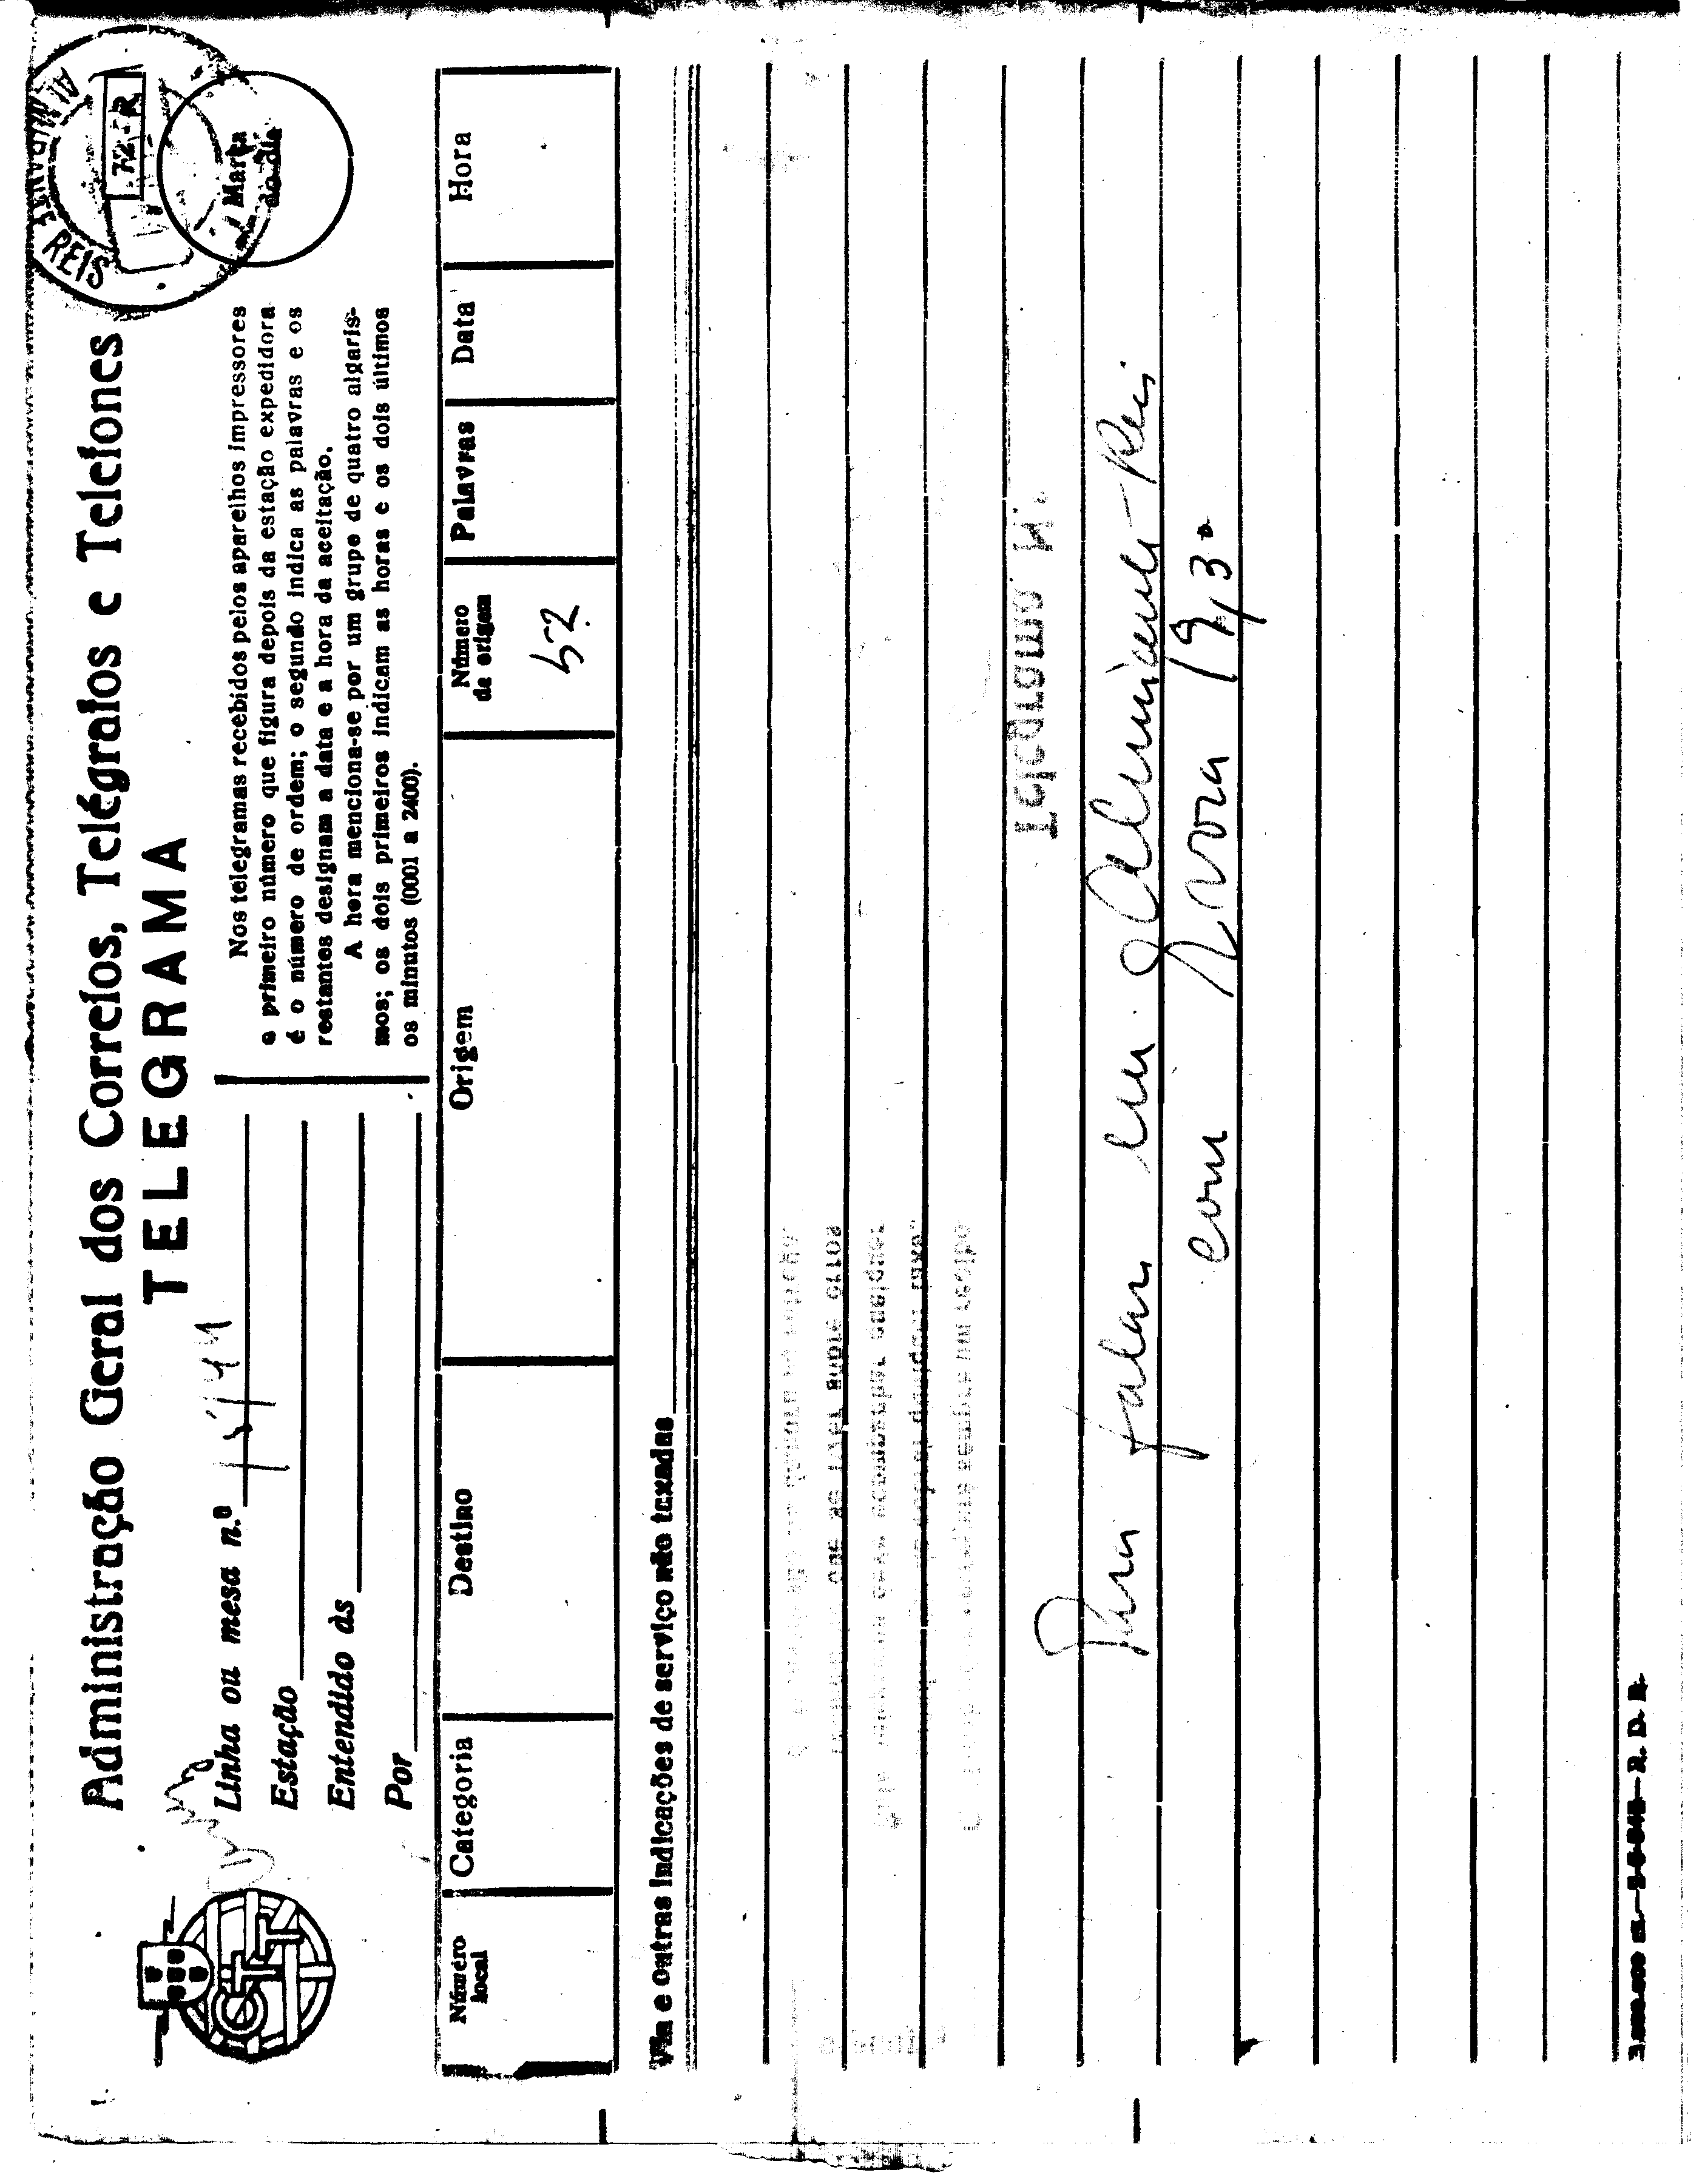 Administração Geral dos Correios, Telégrafos e Telefones
TELEGRAMA
ALMIRANTE REIS
72-R
Marca
do dia
Linha ou mesa n.º
Estação
Entendido às
Por
Nos telegramas recebidos pelos aparelhos impressores
o primeiro número que figura depois da estação expedidora
é o número de ordem; o segundo indica as palavras e os
restantes designam a data e a hora da aceitação.
A hora menciona-se por um grupo de quatro algaris-
mos; os dois primeiros indicam as horas e os dois últimos
os minutos (0001 a 2400).
Número
local
Categoria
Destino
Origem
Número
de origem
Palavras
Data
Hora
52
Via e outras indicações de serviço não taxadas
Para falar em Almirante-Reis
com 19,30